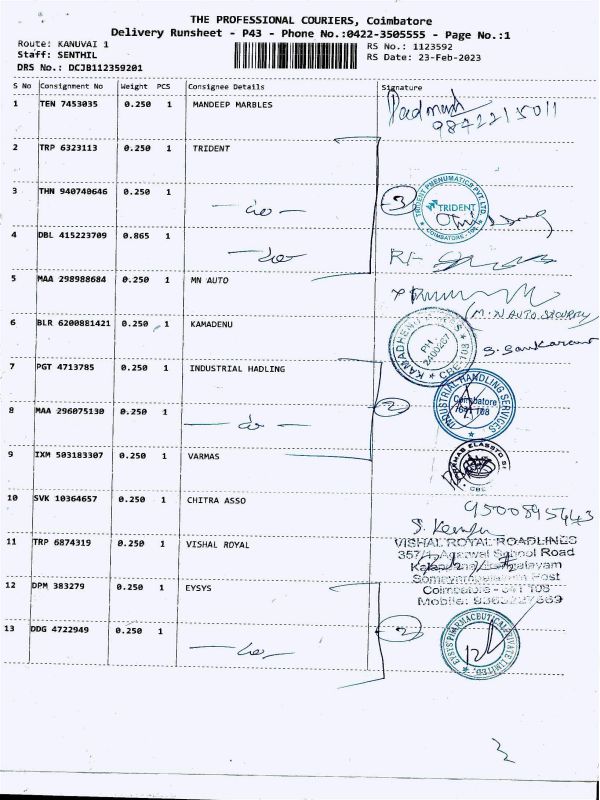 THE PROFESSIONAL COURIERS, Coimbatore
Delivery Runsheet - P43 - Phone No.:0422-3505555 - Page No.:1
Route: KANUVAI 1
RS No.: 1123592
Staff: SENTHIL
RS Date: 23-Feb-2023
DRS No.: DCJB112359201
S No Consignment No Weight PCS Consignee Details Signature
1 TEN 7453035 0.250 1 MANDEEP MARBLES
2 TRP 6323113 0.250 1 TRIDENT
3 THN 940740646 0.250 1
3
TRIDENT PNEUMATICS PVT. LTD.
TRIDENT
COIMBATORE
4 DBL 415223709 0.865 1
5 MAA 298988684 0.250 1 MN AUTO
(M.N AUTO SECURITY)
6 BLR 6200881421 0.250 1 KAMADENU
PH
2400267
CBE 108
S. Sankaran
7 PGT 4713785 0.250 1 INDUSTRIAL HADLING
INDUSTRIAL HANDLING SERVICES
Coimbatore
641 108
8 MAA 296075130 0.250 1 — do —
2
9 IXM 503183307 0.250 1 VARMAS
CBE
10 SVK 10364657 0.250 1 CHITRA ASSO
9500895443
11 TRP 6874319 0.250 1 VISHAL ROYAL
VISHAL ROYAL ROADLINES
Agarwal School Road
Post
Coimbatore - 641 108
12 DPM 383279 0.250 1 EYSYS
13 DDG 4722949 0.250 1
2
EYSYS PHARMACEUTICAL PRIVATE LIMITED